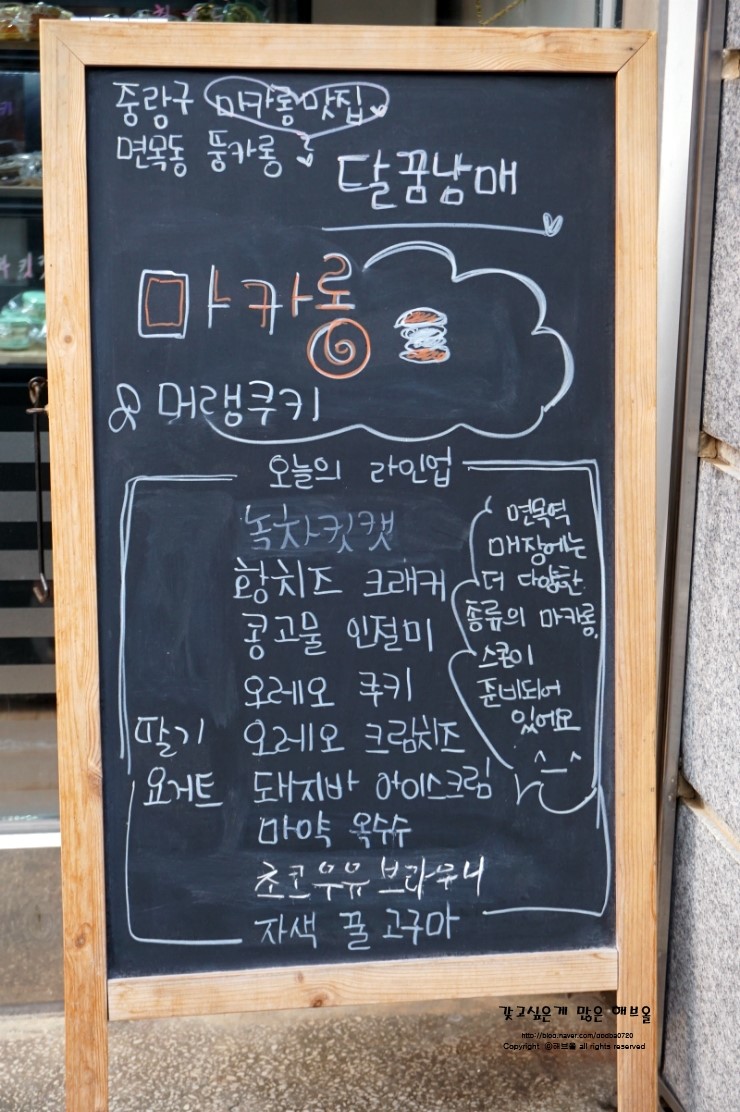 중랑구 마카롱맛집
면목동 뚱카롱
달꿈남매
마카롱
& 머랭쿠키
오늘의 라인업
녹차킷캣
황치즈 크래커
콩고물 인절미
오레오 쿠키
오레오 크림치즈
돼지바 아이스크림
마약 옥수수
초코우유 브라우니
자색 꿀 고구마
딸기
요거트
면목역
매장에는
더 다양한
종류의 마카롱,
스콘이
준비되어
있어요
^_^
갖고싶은게 많은 해브올
Copyright ⓒ해브올 all rights reserved